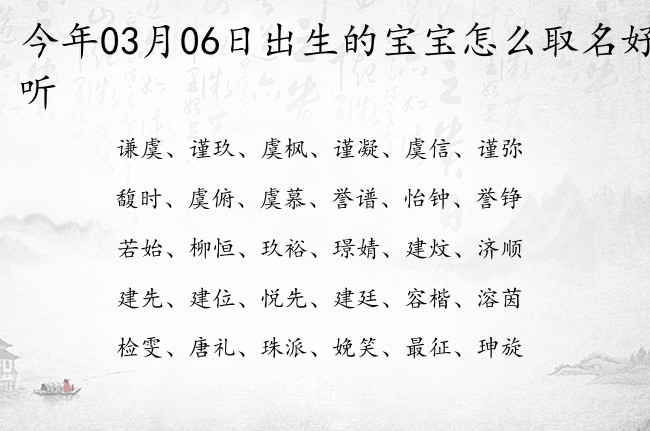 今年03月06日出生的宝宝怎么取名好
听
谦虞、谨玖、虞枫、谨凝、虞信、谨弥
馥时、虞俯、虞慕、誉谱、怡钟、誉铮
若始、柳恒、玖裕、璟婧、建炆、济顺
建先、建位、悦先、建廷、容楷、溶茵
检雯、唐礼、珠派、娩笑、最征、珅旋